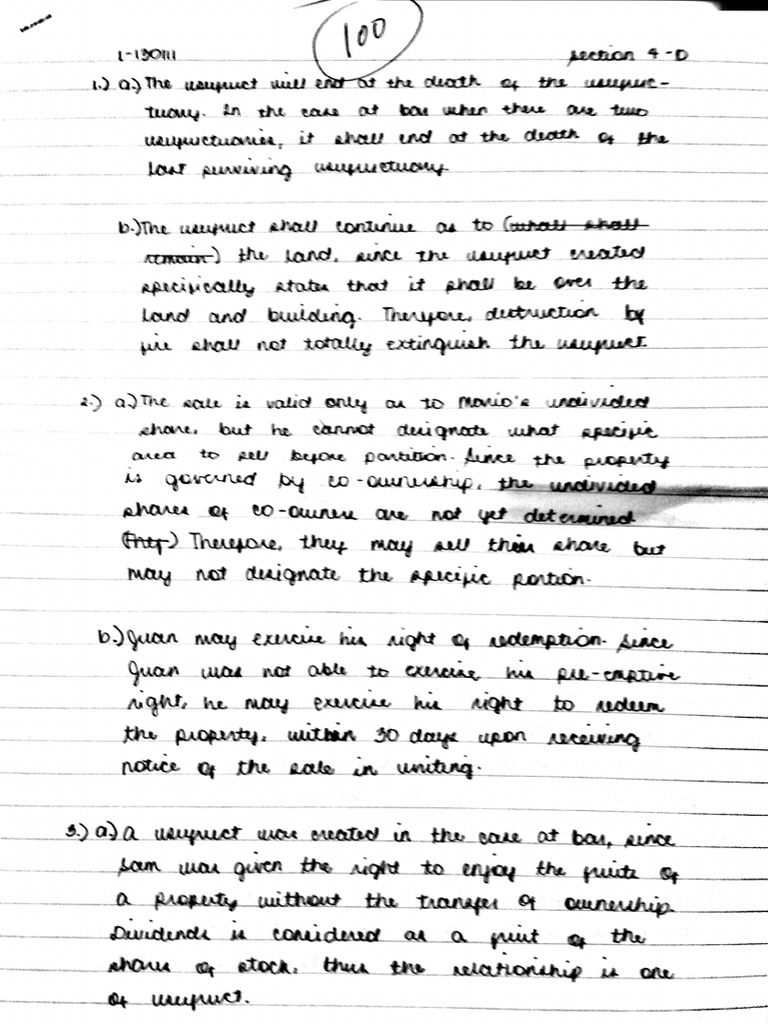 100
1-130111 section 4-D
1.) a.) The usufruct will end at the death of the usufruc-
tuary. In the case at bar when there are two
usufructuaries, it shall end at the death of the
last surviving usufructuary.
b.) The usufruct shall continue as to (what shall
remain) the land, since the usufruct created
specifically states that it shall be over the
land and building. Therefore, destruction by
fire shall not totally extinguish the usufruct.
2.) a.) The sale is valid only as to Mario's undivided
share, but he cannot designate what specific
area to sell before partition. Since the property
is governed by co-ownership, the undivided
shares of co-owners are not yet determined
Therefore, they may sell their share but
may not designate the specific portion.
b.) Juan may exercise his right of redemption. Since
Juan was not able to exercise his pre-emptive
right, he may exercise his right to redeem
the property, within 30 days upon receiving
notice of the sale in writing.
3.) a.) A usufruct was created in the case at bar, since
Sam was given the right to enjoy the fruits of
a property without the transfer of ownership.
Dividends is considered as a fruit of the
shares of stock, thus the relationship is one
of usufruct.